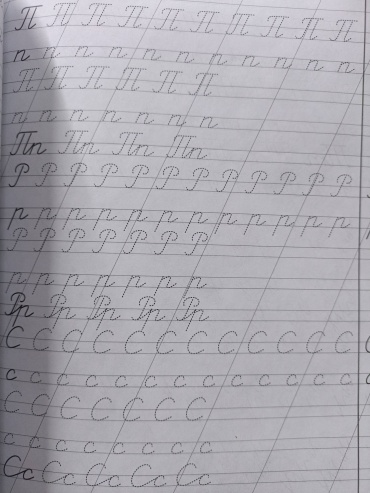 П П П П П П П П П П
п п п п п п п п п п п
П П П П П П
п п п п п п п
Пп Пп Пп Пп
Р Р Р Р Р Р Р Р Р Р Р Р
р р р р р р р р р р р р
Р Р Р Р Р Р Р
р р р р р р р
Рр Рр Рр Рр Рр
С С С С С С С С С С С С
с с с с с с с с с с с с с
С С С С С С С
с с с с с с с с
Сс Сс Сс Сс Сс